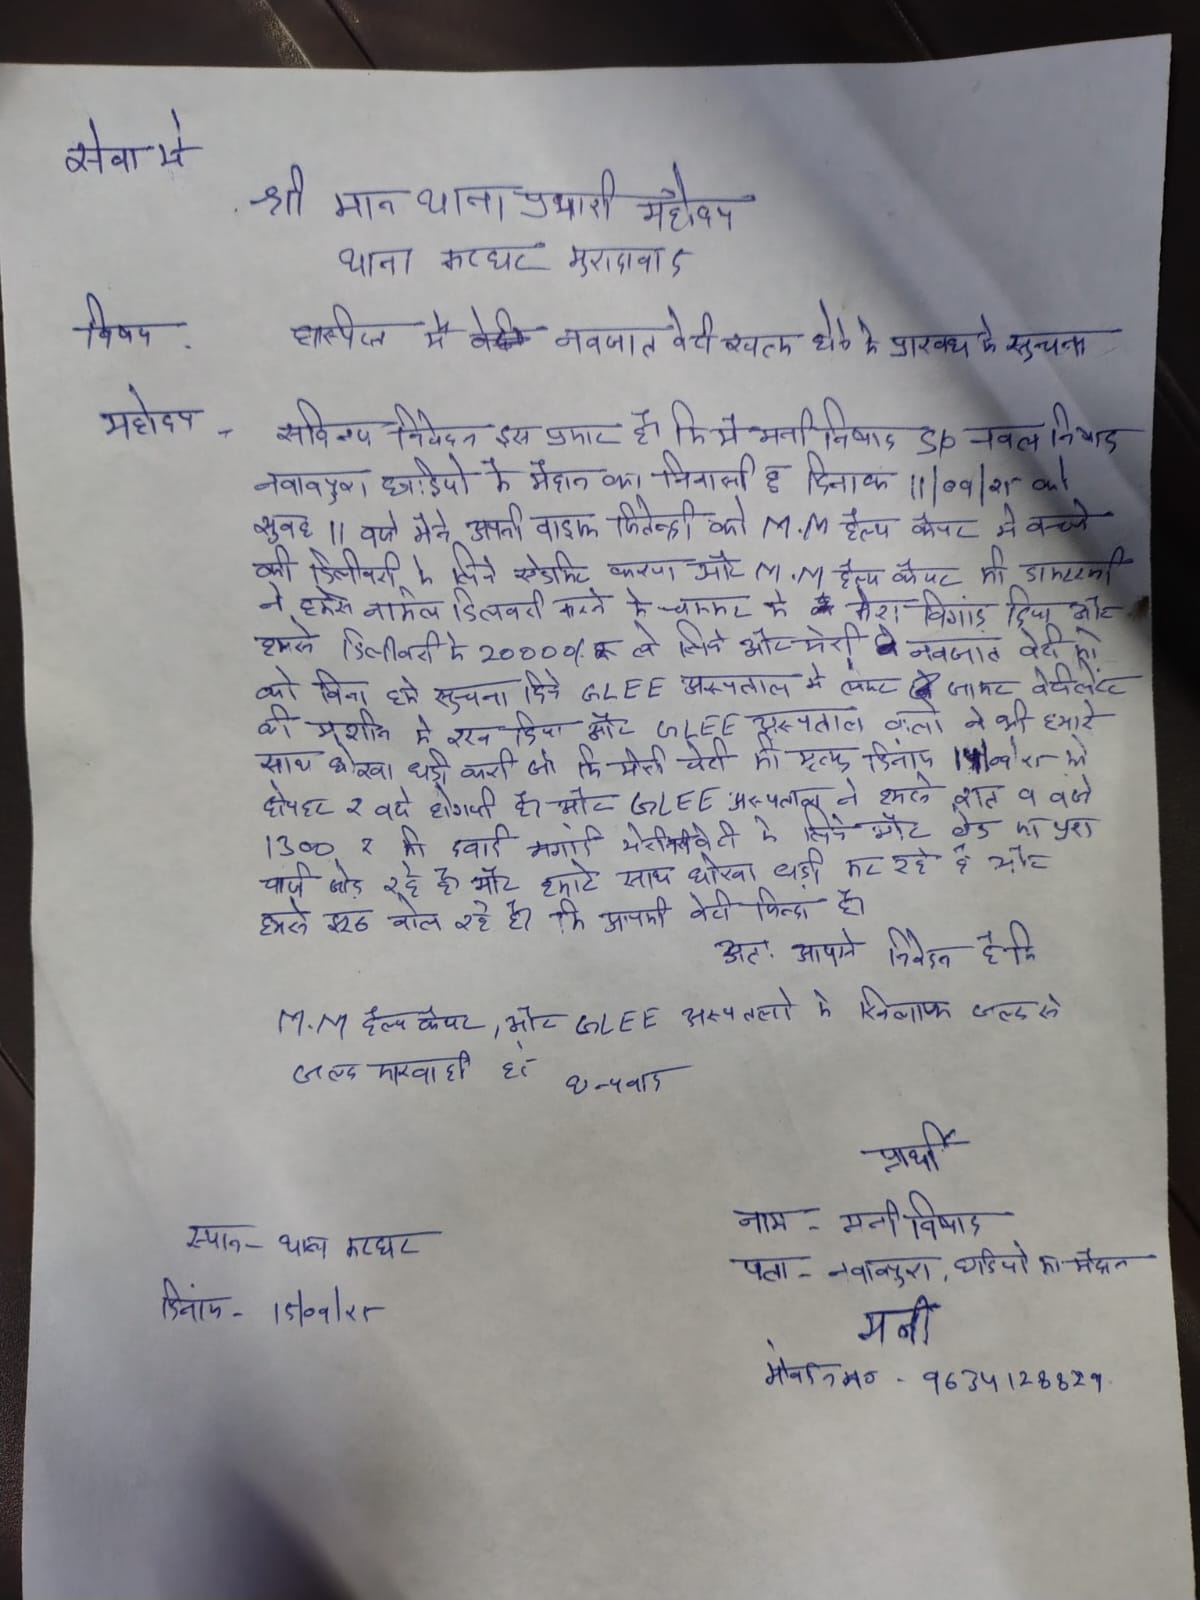 सेवा मे
श्री मान थाना प्रभारी महोदय
थाना कटघर मुरादावाद
विषय . हास्पीटल मे नवजात वेटी खत्म होने के सुचना
महोदय - सविनय निवेदन इस प्रकार है। कि मै मनी निषाद S/o नवल निषाद
नवावपुरा के मैदान का निवासी हू दिनाक 11/09/25 को
सुवह 11 वजे मैने अपनी वाइफ को M.M हैल्प केयर मे वच्चे
की डिलीवरी के लिये एडमिट कराया और M.M हैल्प केयर की डाक्टरनी
ने हमसे नार्मल डिलवरी करने के चक्कर मे मेरा विगाड दिया और
हमसे डिलीवरी के 20000/ रू ले लिये और मेरी नवजात वेटी को
को बिना हमे सुचना दिये GLEE अस्पताल मे लेकर जाकर वेटीलेटर
की मशीन मे रख दिया और GLEE अस्पताल वालो ने भी हमारे
साथ धोखा धडी करी जो कि मेरी वेटी की मृत्यु दिनांक 14/09/25 को
दोपहर 2 वजे होगयी है। और GLEE अस्पताल ने हमसे रात 9 वजे
1300 रू की दवाई मगांई मेरी वेटी के लिये और वेड का पुरा
चार्ज जोड रहे है। और हमारे साथ धोखा धड़ी कर रहे है और
हमसे झुठ वोल रहे है। कि आपकी वेटी जिन्दा है।
अतः आपसे निवेदन है कि
M.M हैल्प केयर, और GLEE अस्पतलो के खिलाफ जल्द से
जल्द कारवाही हो धन्यवाद
प्रार्थी
नाम - मनी निषाद
स्थान - थाना कटघर
पता - नवावपुरा, का मैदान
दिनांक - 15/09/25
मनी
मोवाइल न० - 9634128829